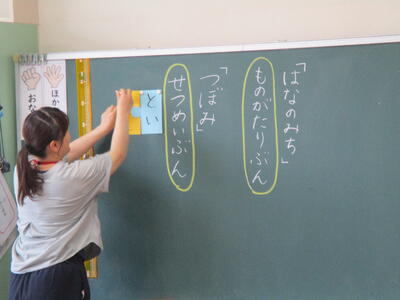 「はなのみち」
ものがたりぶん
「つぼみ」
せつめいぶん
とい